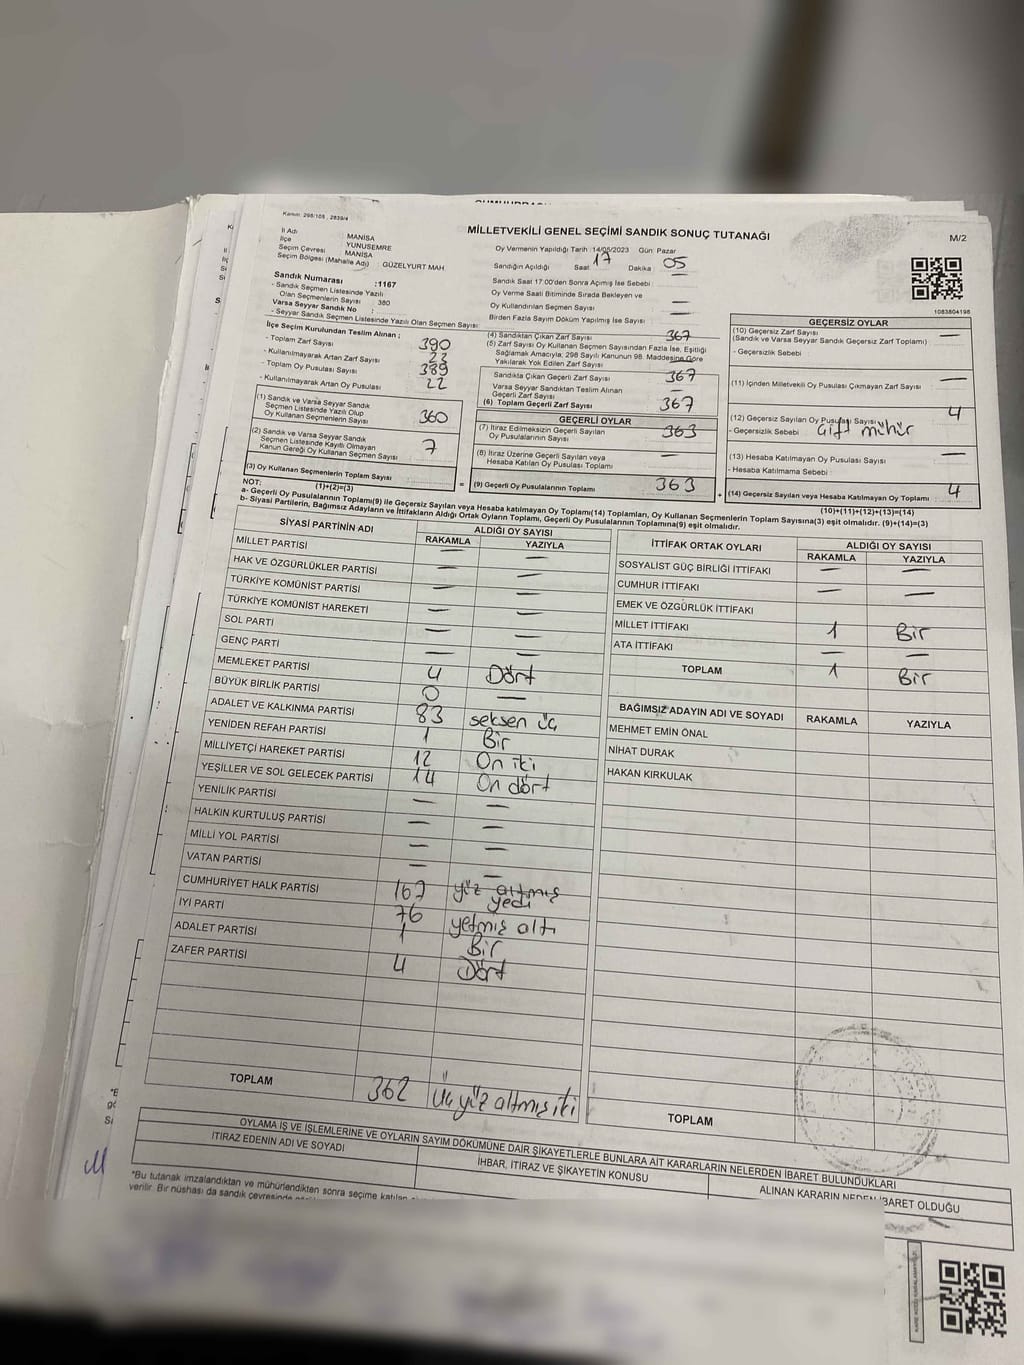 Kanun: 298/105 , 2839/4
MİLLETVEKİLİ GENEL SEÇİMİ SANDIK SONUÇ TUTANAĞI
M/2
İl Adı : MANİSA
İlçe : YUNUSEMRE
Seçim Çevresi : MANİSA
Seçim Bölgesi (Mahalle Adı) : GÜZELYURT MAH.
Oy Vermenin Yapıldığı Tarih :14/05/2023 Gün: Pazar
Sandığın Açıldığı Saat: 17 Dakika 05
Sandık Numarası :1167
- Sandık Seçmen Listesinde Yazılı
Olan Seçmenlerin Sayısı : 380
Varsa Seyyar Sandık No :
- Seyyar Sandık Seçmen Listesinde Yazılı Olan Seçmen Sayısı
Sandık Saat 17:00'den Sonra Açımış İse Sebebi :
Oy Verme Saati Bitiminde Sırada Bekleyen ve
Oy Kullandırılan Seçmen Sayısı : —
Birden Fazla Sayım Döküm Yapılmış İse Sayısı : —
1083804198
İlçe Seçim Kurulundan Teslim Alınan ;
- Toplam Zarf Sayısı : 390
- Kullanılmayarak Artan Zarf Sayısı 23
- Toplam Oy Pusulası Sayısı : 389
- Kullanılmayarak Artan Oy Pusulası 22
(1) Sandık ve Varsa Seyyar Sandık
Seçmen Listesinde Yazılı Olup
Oy Kullanan Seçmenlerin Sayısı 360
(2) Sandık ve Varsa Seyyar Sandık
Seçmen Listesinde Kayıtlı Olmayan
Kanun Gereği Oy Kullanan Seçmen Sayısı 7
(3) Oy Kullanan Seçmenlerin Toplam Sayısı
(1)+(2)=(3)
(4) Sandıktan Çıkan Zarf Sayısı 367
(5) Zarf Sayısı Oy Kullanan Seçmen Sayısından Fazla İse, Eşitliği
Sağlamak Amacıyla; 298 Sayılı Kanunun 98. Maddesine Göre
Yakılarak Yok Edilen Zarf Sayısı —
Sandıkta Çıkan Geçerli Zarf Sayısı 367
Varsa Seyyar Sandıktan Teslim Alınan
Geçerli Zarf Sayısı —
(6) Toplam Geçerli Zarf Sayısı 367
GEÇERLİ OYLAR
(7) İtiraz Edilmeksizin Geçerli Sayılan
Oy Pusulalarının Sayısı 363
(8) İtiraz Üzerine Geçerli Sayılan veya
Hesaba Katılan Oy Pusulası Toplamı —
= (9) Geçerli Oy Pusulalarının Toplamı 363
GEÇERSİZ OYLAR
(10) Geçersiz Zarf Sayısı
(Sandık ve Varsa Seyyar Sandık Geçersiz Zarf Toplamı) —
- Geçersizlik Sebebi :
(11) İçinden Milletvekili Oy Pusulası Çıkmayan Zarf Sayısı —
(12) Geçersiz Sayılan Oy Pusulası Sayısı 4
- Geçersizlik Sebebi : Çift mühür
(13) Hesaba Katılmayan Oy Pusulası Sayısı —
- Hesaba Katılmama Sebebi :
+ (14) Geçersiz Sayılan veya Hesaba Katılmayan Oy Toplamı 4
(10)+(11)+(12)+(13)=(14)
NOT:
a- Geçerli Oy Pusulalarının Toplamı(9) ile Geçersiz Sayılan veya Hesaba katılmayan Oy Toplamı(14) Toplamları, Oy Kullanan Seçmenlerin Toplam Sayısına(3) eşit olmalıdır. (9)+(14)=(3)
b- Siyasi Partilerin, Bağımsız Adayların ve İttifakların Aldığı Ortak Oyların Toplamı, Geçerli Oy Pusulalarının Toplamına(9) eşit olmalıdır.
SİYASİ PARTİNİN ADI
ALDIĞI OY SAYISI
RAKAMLA YAZIYLA
MİLLET PARTİSİ — —
HAK VE ÖZGÜRLÜKLER PARTİSİ — —
TÜRKİYE KOMÜNİST PARTİSİ — —
TÜRKİYE KOMÜNİST HAREKETİ — —
SOL PARTİ — —
GENÇ PARTİ — —
MEMLEKET PARTİSİ 4 Dört
BÜYÜK BİRLİK PARTİSİ 0 —
ADALET VE KALKINMA PARTİSİ 83 seksen üç
YENİDEN REFAH PARTİSİ 1 Bir
MİLLİYETÇİ HAREKET PARTİSİ 12 On iki
YEŞİLLER VE SOL GELECEK PARTİSİ 14 On dört
YENİLİK PARTİSİ — —
HALKIN KURTULUŞ PARTİSİ — —
MİLLİ YOL PARTİSİ — —
VATAN PARTİSİ — —
CUMHURİYET HALK PARTİSİ 167 yüz altmış yedi
İYİ PARTİ 76 yetmiş altı
ADALET PARTİSİ 1 Bir
ZAFER PARTİSİ 4 Dört
TOPLAM 362 Üç yüz altmış iki
İTTİFAK ORTAK OYLARI
ALDIĞI OY SAYISI
RAKAMLA YAZIYLA
SOSYALİST GÜÇ BİRLİĞİ İTTİFAKI — —
CUMHUR İTTİFAKI — —
EMEK VE ÖZGÜRLÜK İTTİFAKI
MİLLET İTTİFAKI 1 Bir
ATA İTTİFAKI — —
TOPLAM 1 Bir
BAĞIMSIZ ADAYIN ADI VE SOYADI RAKAMLA YAZIYLA
MEHMET EMİN ÖNAL
NİHAT DURAK
HAKAN KIRKULAK
TOPLAM
OYLAMA İŞ VE İŞLEMLERİNE VE OYLARIN SAYIM DÖKÜMÜNE DAİR ŞİKAYETLERLE BUNLARA AİT KARARLARIN NELERDEN İBARET BULUNDUKLARI
İTİRAZ EDENİN ADI VE SOYADI
İHBAR, İTİRAZ VE ŞİKAYETİN KONUSU
ALINAN KARARIN NEDEN İBARET OLDUĞU
*Bu tutanak imzalandıktan ve mühürlendikten sonra seçime katılan
verilir. Bir nüshası da sandık çevresinde